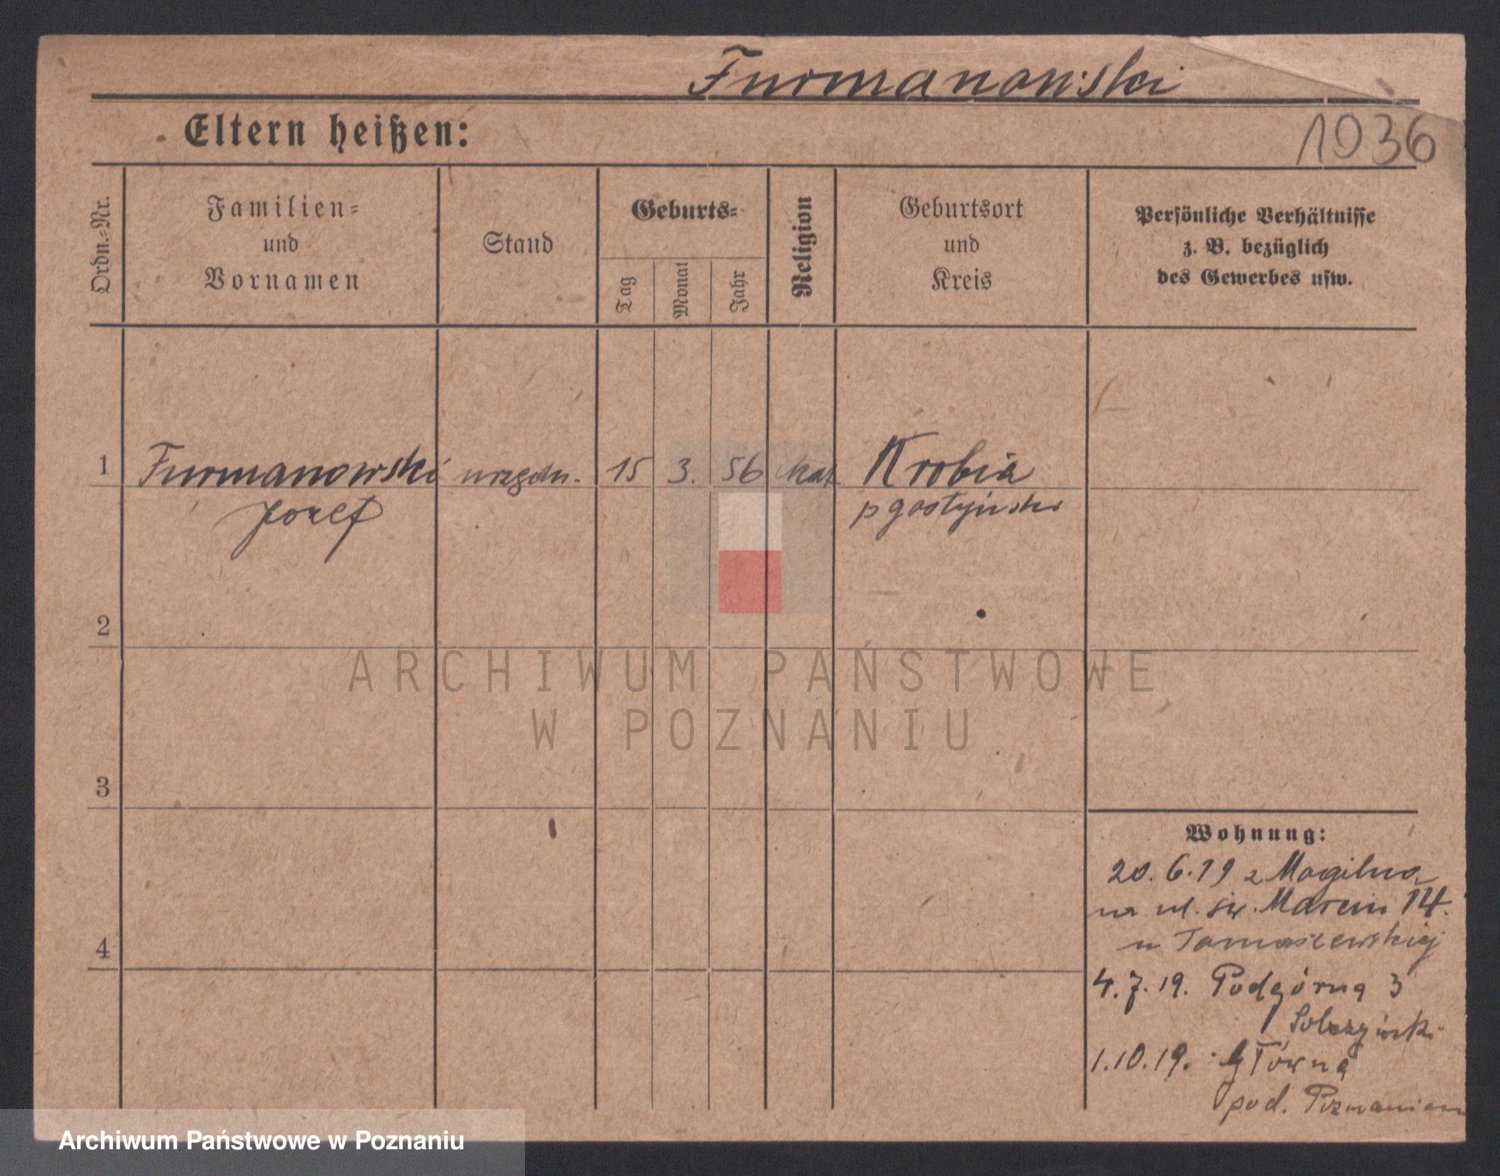 Furmanowski
Eltern heißen:
1936
Ordn.-Nr.
Familien-
und
Vornamen
Stand
Geburts-
Tag
Monat
Jahr
Religion
Geburtsort
und
Kreis
Persönliche Verhältnisse
z. B. bezüglich
des Gewerbes usw.
1
Furmanowski
Józef
urzędn.
15
3.
56
kat
Krobia
p gostyński
2
3
4
Wohnung:
20.6.19 z Mogilna
na ul. św. Marcin 14.
u Tomaszewskiej
4.7.19. Podgórna 3
1.10.19. Główna
pod. Poznaniem
ARCHIWUM PAŃSTWOWE
W POZNANIU
Archiwum Państwowe w Poznaniu